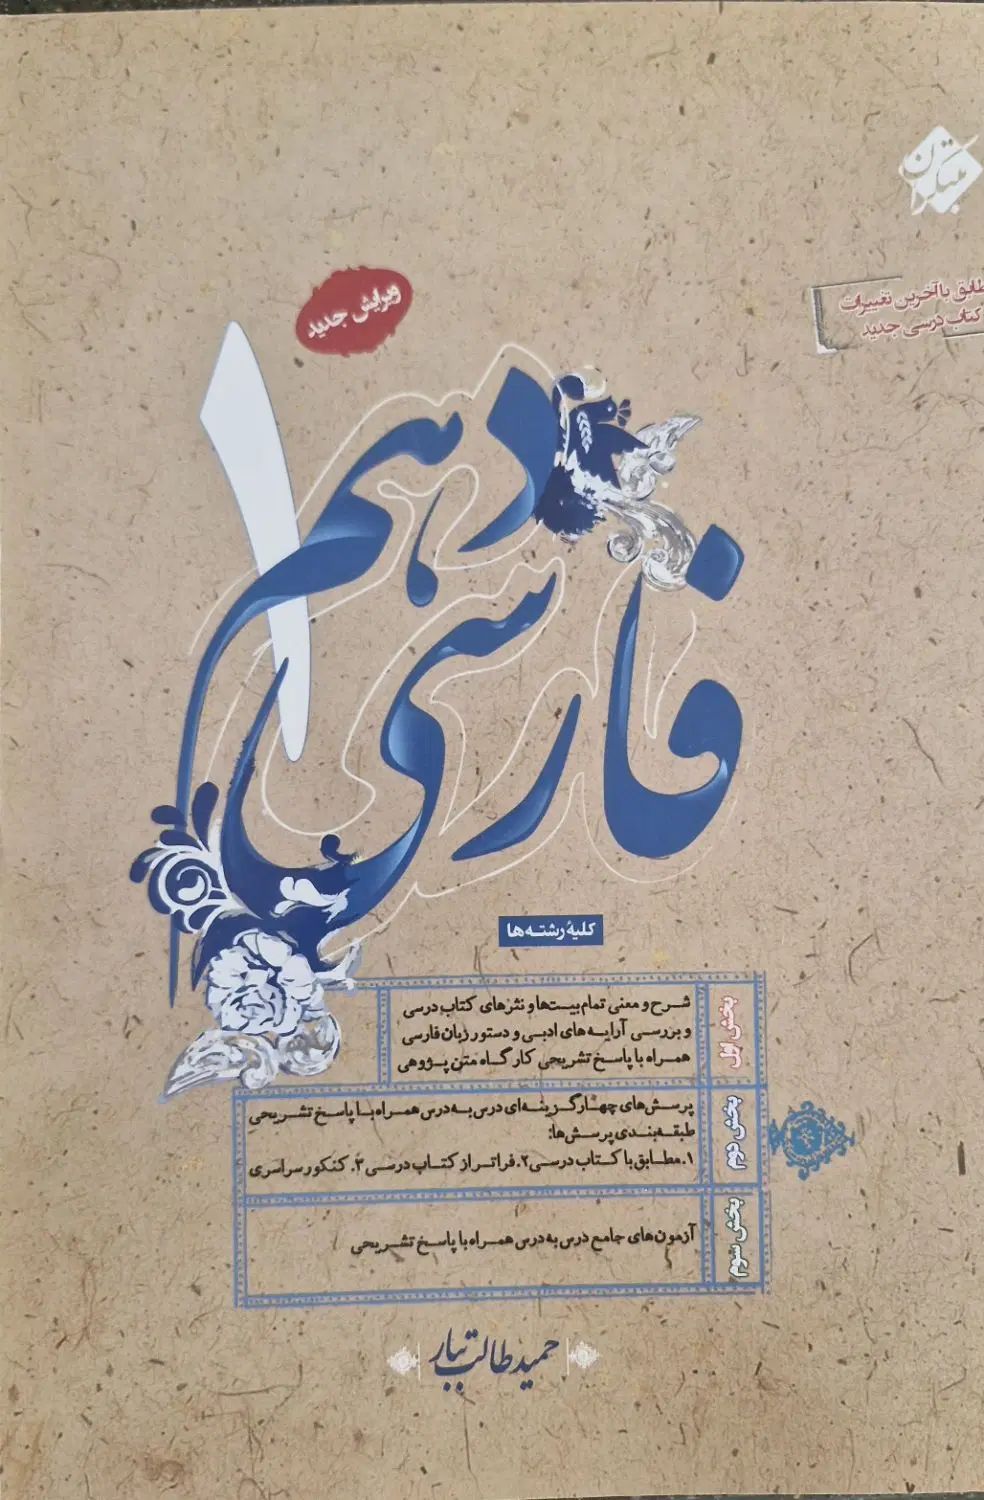 مبتکران
طابق با آخرین تغییرات
کتاب درسی جدید
ویرایش جدید
فارسی
دهم
۱
کلیهٔ رشته‌ها
بخش اول
شرح و معنی تمام بیت‌ها و نثرهای کتاب درسی
و بررسی آرایه‌های ادبی و دستور زبان فارسی
همراه با پاسخ تشریحی کارگاه متن پژوهی
بخش دوم
پرسش‌های چهارگزینه‌ای درس به درس همراه با پاسخ تشریحی
طبقه‌بندی پرسش‌ها:
۱. مطابق با کتاب درسی ۲. فراتر از کتاب درسی ۳. کنکور سراسری
بخش سوم
آزمون‌های جامع درس به درس همراه با پاسخ تشریحی
حمید طالب تبار